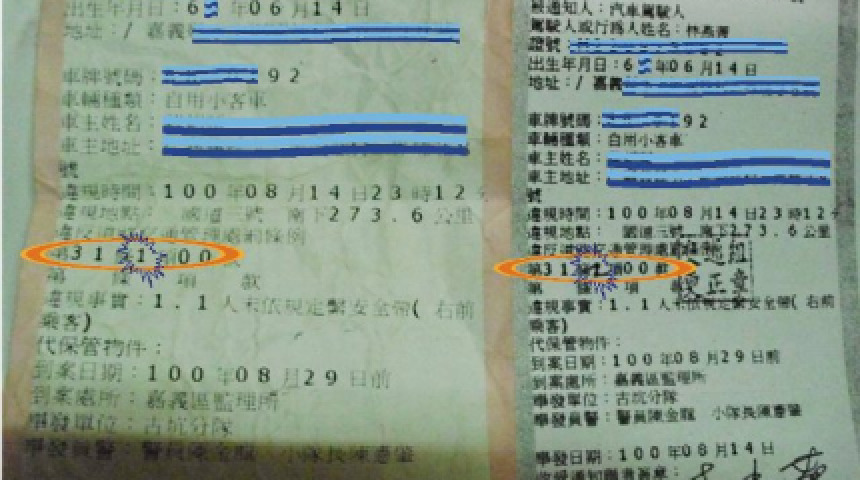 出生年月日：6 年06月14日
地址：/ 嘉義
車牌號碼： 92
車輛種類：自用小客車
車主姓名：
車主地址：
號
違規時間：100年08月14日23時12
違規地點： 國道三號 南下273.6公里
違反道路交通管理處罰條例
第31條1項00款
第 條 項 款
違規事實：1.1人未依規定繫安全帶(右前
乘客)
代保管物件：
到案日期：100年08月29日前
到案處所：嘉義區監理所
舉發單位：古坑分隊
舉發員警：警員陳金龍 小隊長陳憲肇
被通知人：汽車駕駛人
駕駛人或行為人姓名：
證號
出生年月日：6 年06月14日
地址：/ 嘉義
車牌號碼： 92
車輛種類：自用小客車
車主姓名：
車主地址：
號
違規時間：100年08月14日23時12
違規地點： 國道三號 南下273.6公里
違反道路交通管理處罰條例
第31條 項00款
第 條 項
違規事實：1.1人未依規定繫安全帶(右前
乘客)
代保管物件：
到案日期：100年08月29日前
到案處所：嘉義區監理所
舉發單位：古坑分隊
舉發員警：警員陳金龍 小隊長陳憲肇
舉發日期：100年08月14日
收受通知聯者簽章：